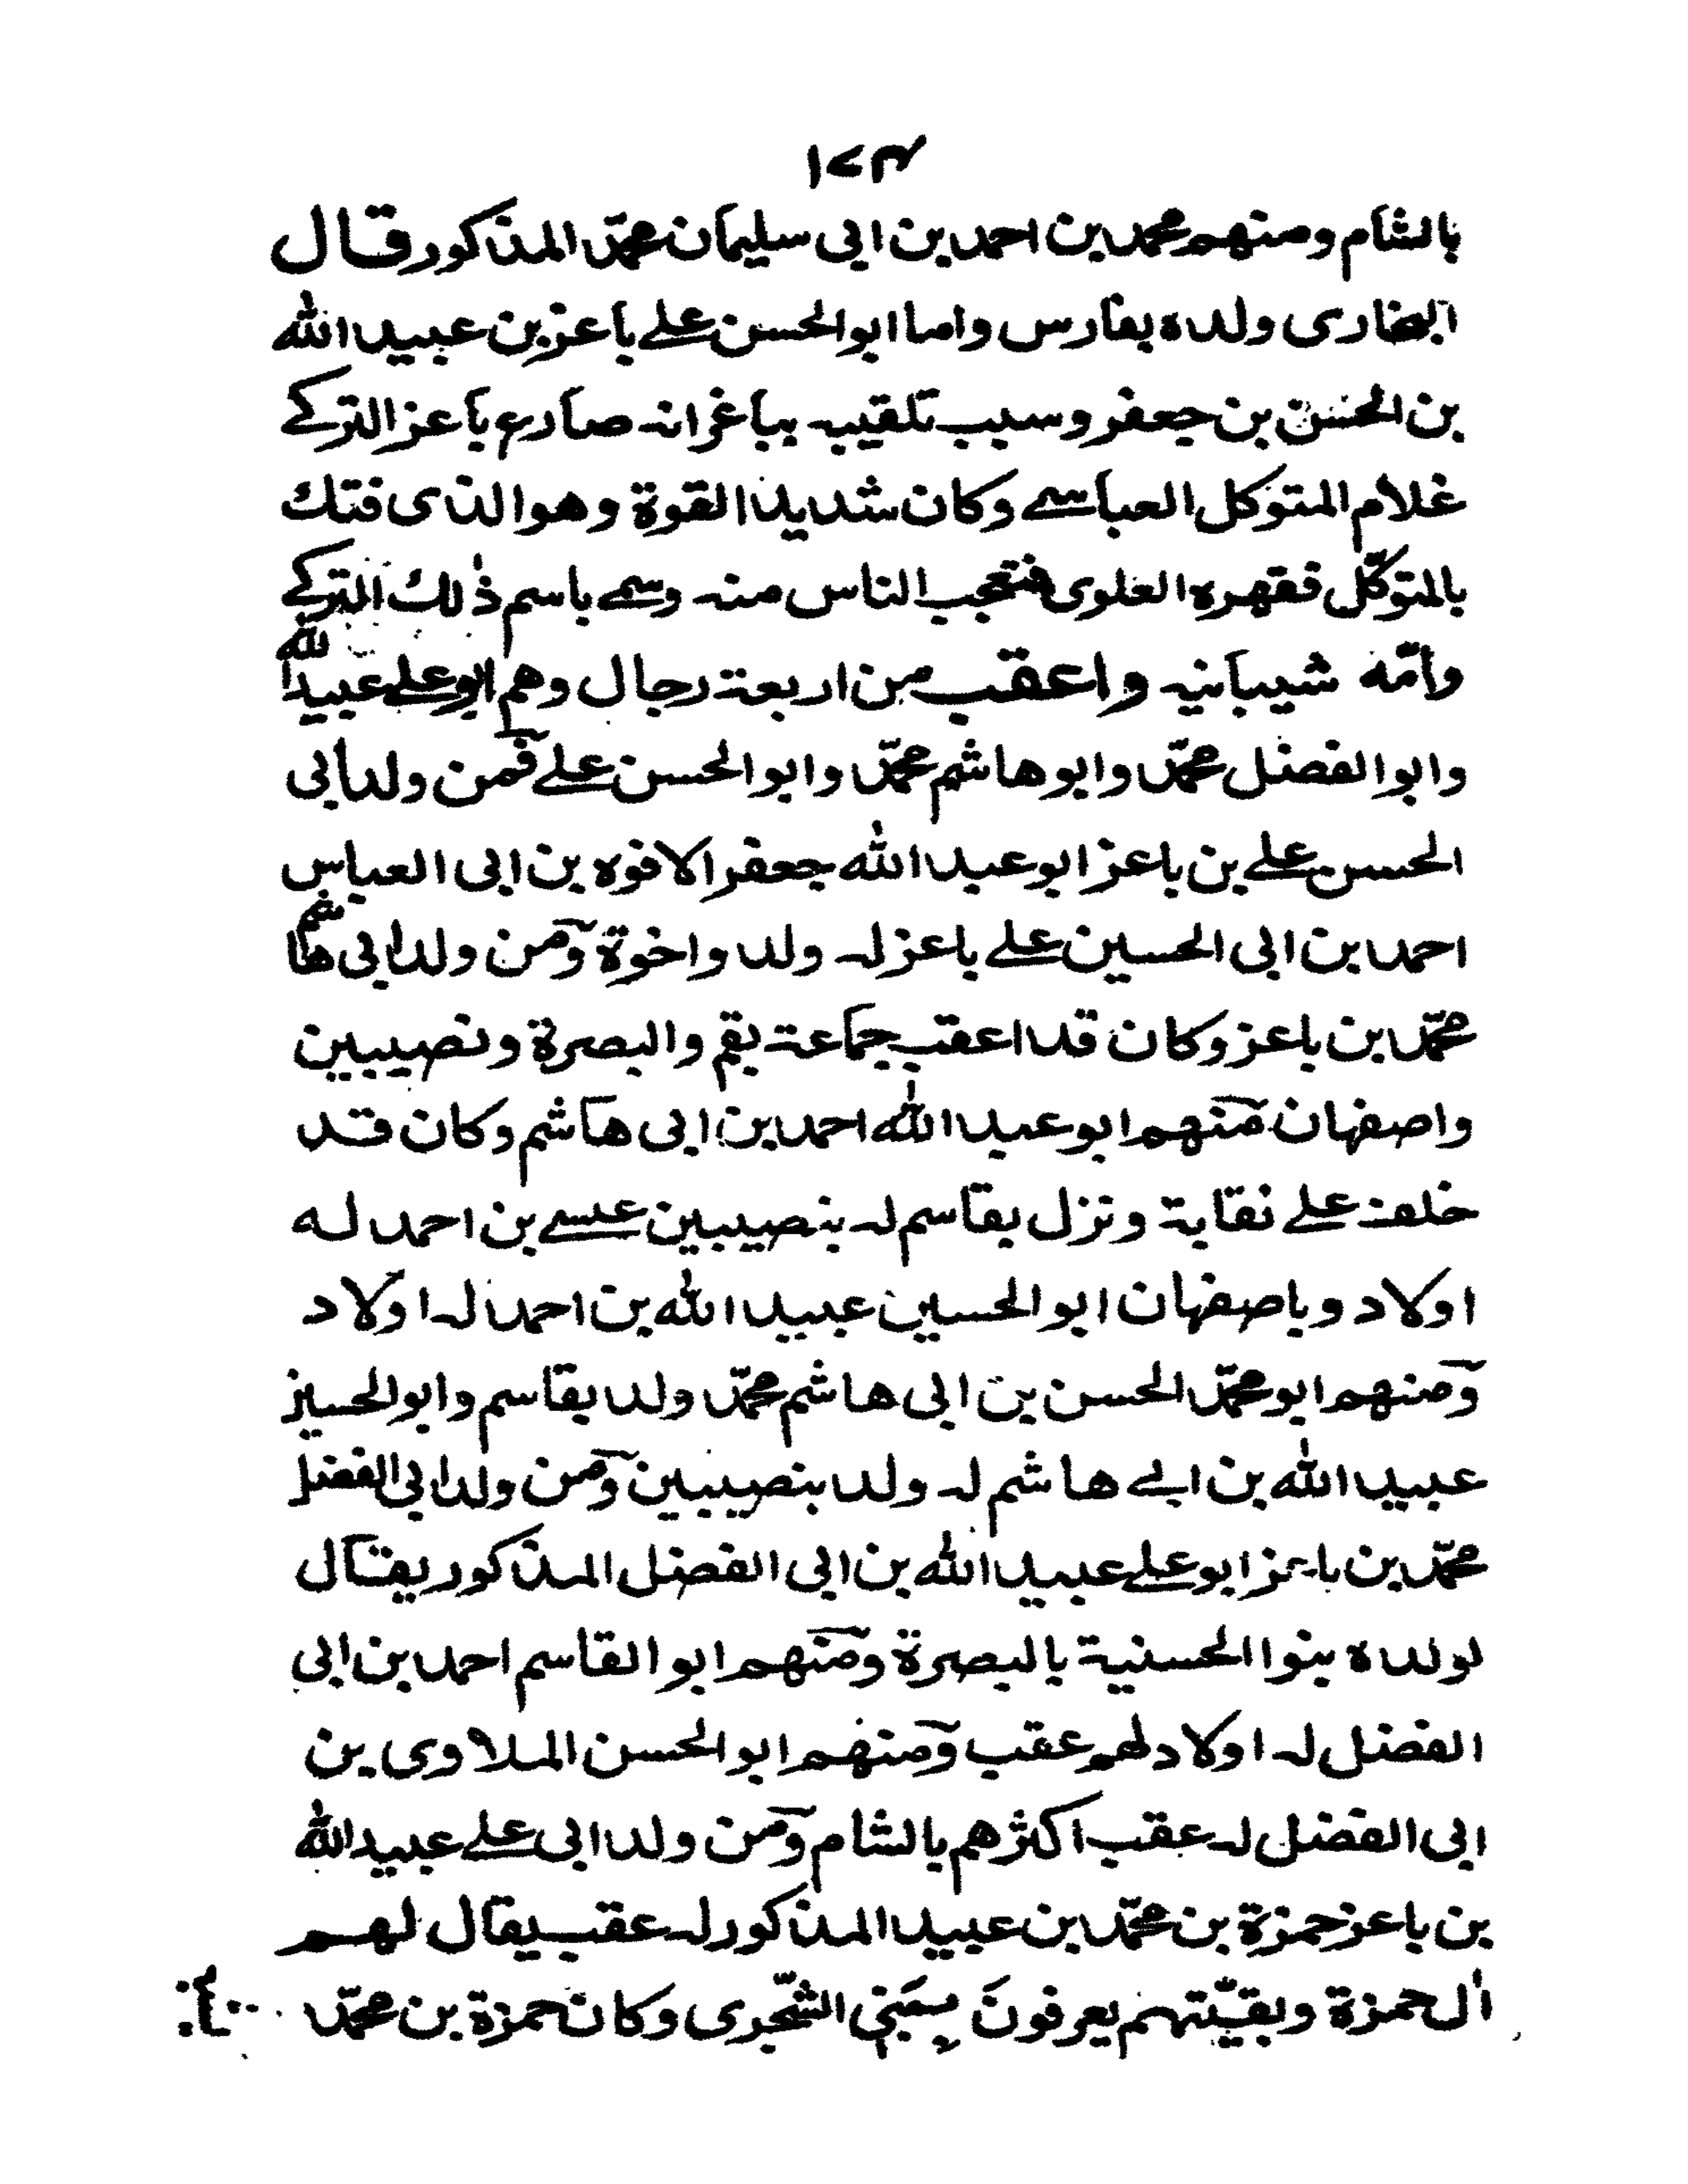 ١٧٣
بالشام ومنهم محمد بن احمد بن ابى سليمان محمّد المذكور قال
البخارى ولده بفارس واما ابوالحسن على باعز بن عبيد الله
بن الحسن بن جعفر وسبب تلقيبه بباغر انه صارع باعز التركى
غلام المتوكل العباسى وكان شديد القوة وهو الذى فتك
بالمتوكّل فقهره العلوى فتعجب الناس منه وسمى باسم ذٰلك التركى
وامّه شيبانيه واعقب من اربعة رجال وهم ابوعلى عبيدالله
وابوالفضل محمّد وابوهاشم محمّد وابوالحسن على فمن ولد ابى
الحسن على بن باعز ابوعبد الله جعفر الافوه بن ابى العباس
احمد بن ابى الحسين على باعز له ولد واخوة ومن ولد ابى هاشم
محمّد بن باعز وكان قد اعقب جماعة بقم والبصرة ونصيبين
واصفهان منهم ابوعبد الله احمد بن ابى هاشم وكان قد
خلف على نقابة ونزل بقاسم له بنصيبين عيسى بن احمد له
اولاد وباصفهان ابوالحسين عبيد الله بن احمد له اولاد
ومنهم ابومحمّد الحسن بن ابى هاشم محمّد ولد بقاسم وابوالحسين
عبيد الله بن ابى هاشم له ولد بنصيبين ومن ولد ابى الفضل
محمّد بن باعز ابوعلى عبيد الله بن ابى الفضل المذكور يقال
لولده بنوا الحسنية بالبصرة ومنهم ابوالقاسم احمد بن ابى
الفضل له اولاد لهم عقب ومنهم ابوالحسن الملاوى بن
ابى الفضل له عقب اكثرهم بالشام ومن ولد ابى على عبيدالله
بن باعز حمزة بن محمّد بن عبيد المذكور له عقب يقال لهم
اٰل حمزة وبقيّتهم يعرفون ببنى الشّجرى وكان حمزة بن محمّد